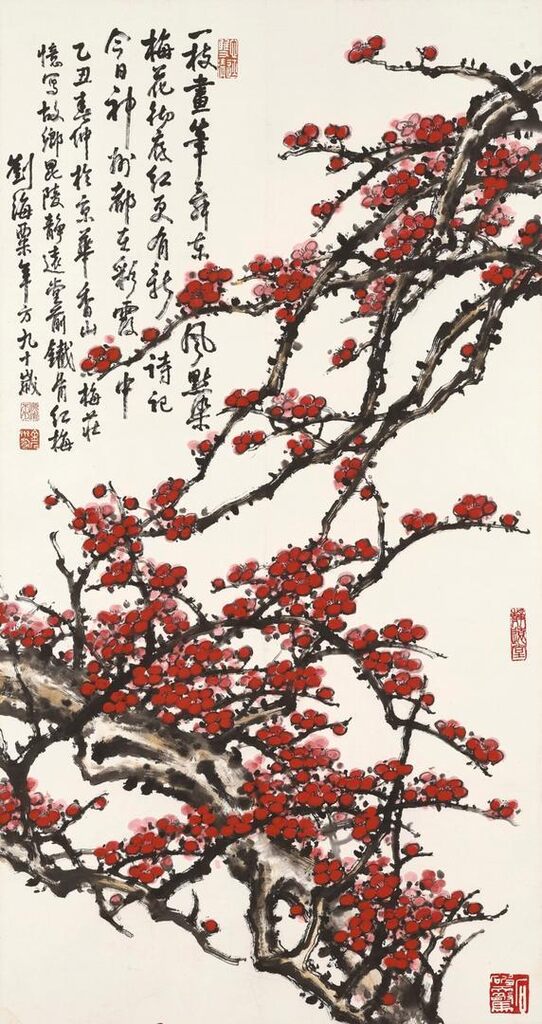 一枝畫筆舞東風點染
梅花徹底紅更有新詩記
今日神州都在彩霞中
乙丑春仲於京華香山梅莊
憶寫故鄉毘陵靜遠堂前鐵骨紅梅
劉海粟年方九十歲